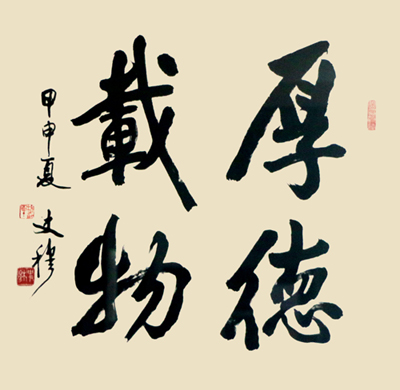 厚德
載物
甲申夏 史穆